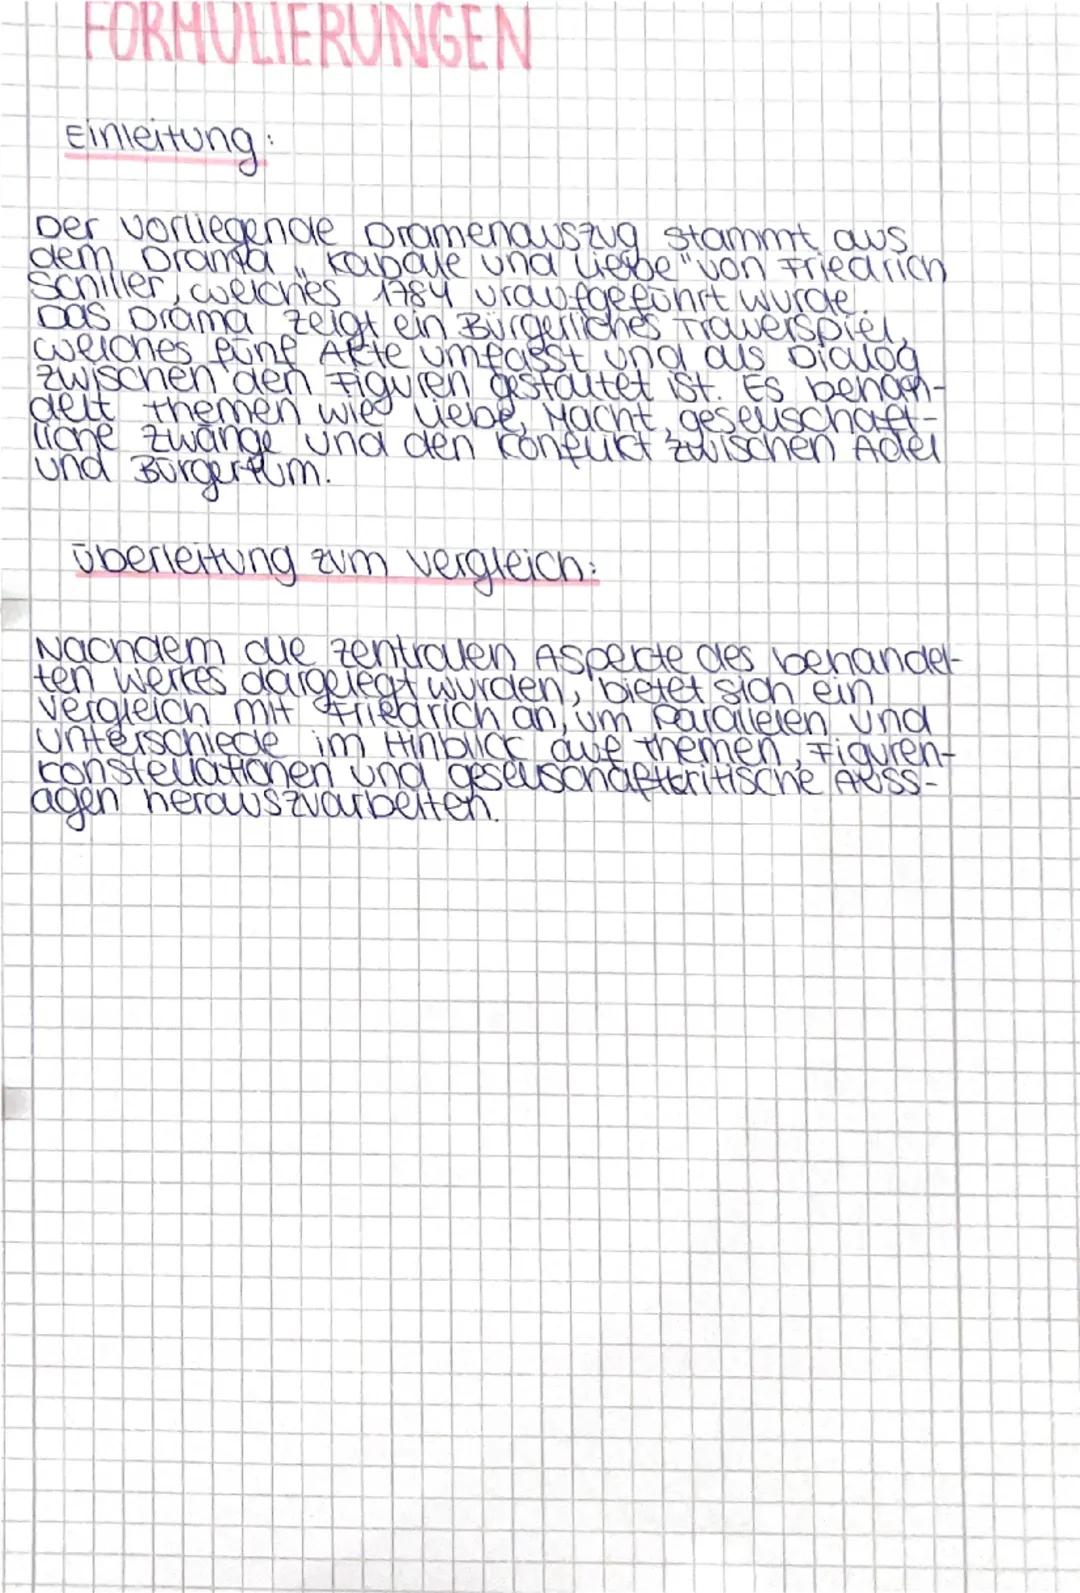 FORMULIERUNGEN
Einleitung:
Der vorliegende Dramenauszug stammt aus
dem Drama „Kabale und Liebe" von Friedrich
Schiller, welches 1784 uraufgeführt wurde.
Das Drama zeigt ein Bürgerliches Trauerspiel,
welches fünf Akte umfasst und als Dialog
zwischen den Figuren gestaltet ist. Es behan-
delt Themen wie Liebe, Macht, gesellschaft-
liche Zwänge und den Konflikt zwischen Adel
und Bürgertum.
Überleitung zum Vergleich:
Nachdem die zentralen Aspekte des behandel-
ten Werkes dargelegt wurden, bietet sich ein
Vergleich mit Friedrich an, um Parallelen und
Unterschiede im Hinblick auf Themen, Figuren-
konstellationen und gesellschaftkritische Auss-
agen herauszuarbeiten.